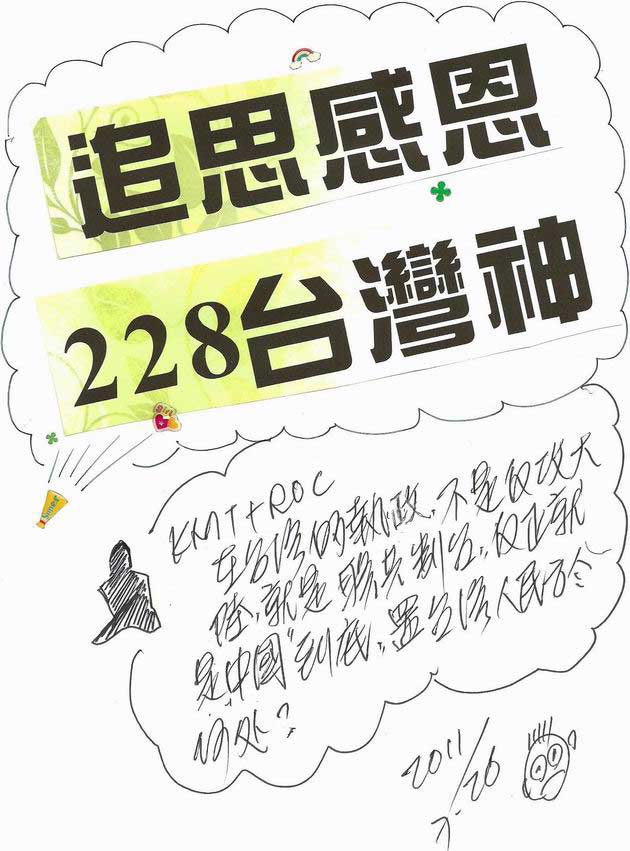 追思感恩
228台灣神
KMT+ROC
在台湾的執政,不是反攻大
陸,就是聯共制台,反正就
是"中國"到底,置台湾人民於
何处?
2011
2.26